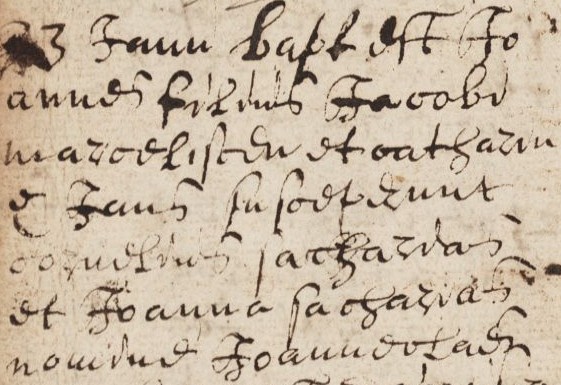 23 Janu bapt est Jo
annes filius Jacobi
marcelissen et catharin
e Jans susceperunt
cornelius sacharias
et Joanna sacharias
nomine Joanne claes